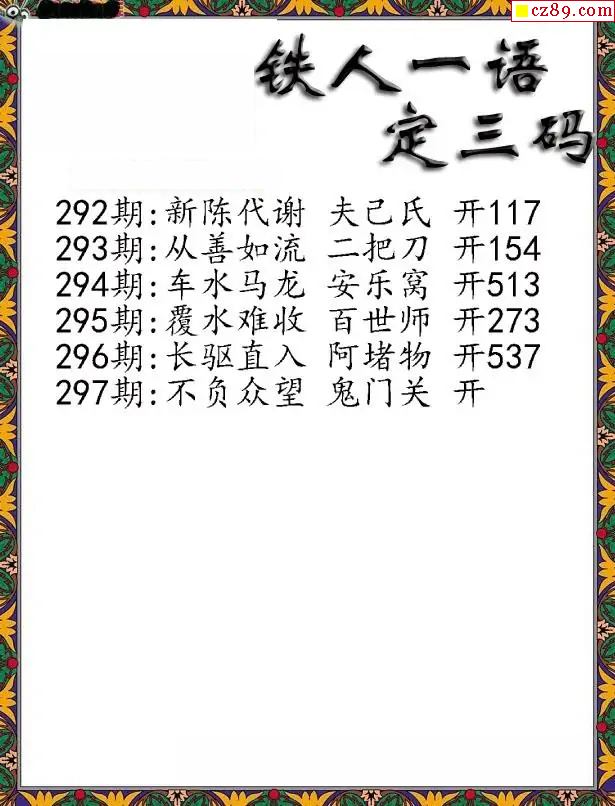 cz89.com
铁人一语
定三码
292期:新陈代谢 夫己氏 开117
293期:从善如流 二把刀 开154
294期:车水马龙 安乐窝 开513
295期:覆水难收 百世师 开273
296期:长驱直入 阿堵物 开537
297期:不负众望 鬼门关 开